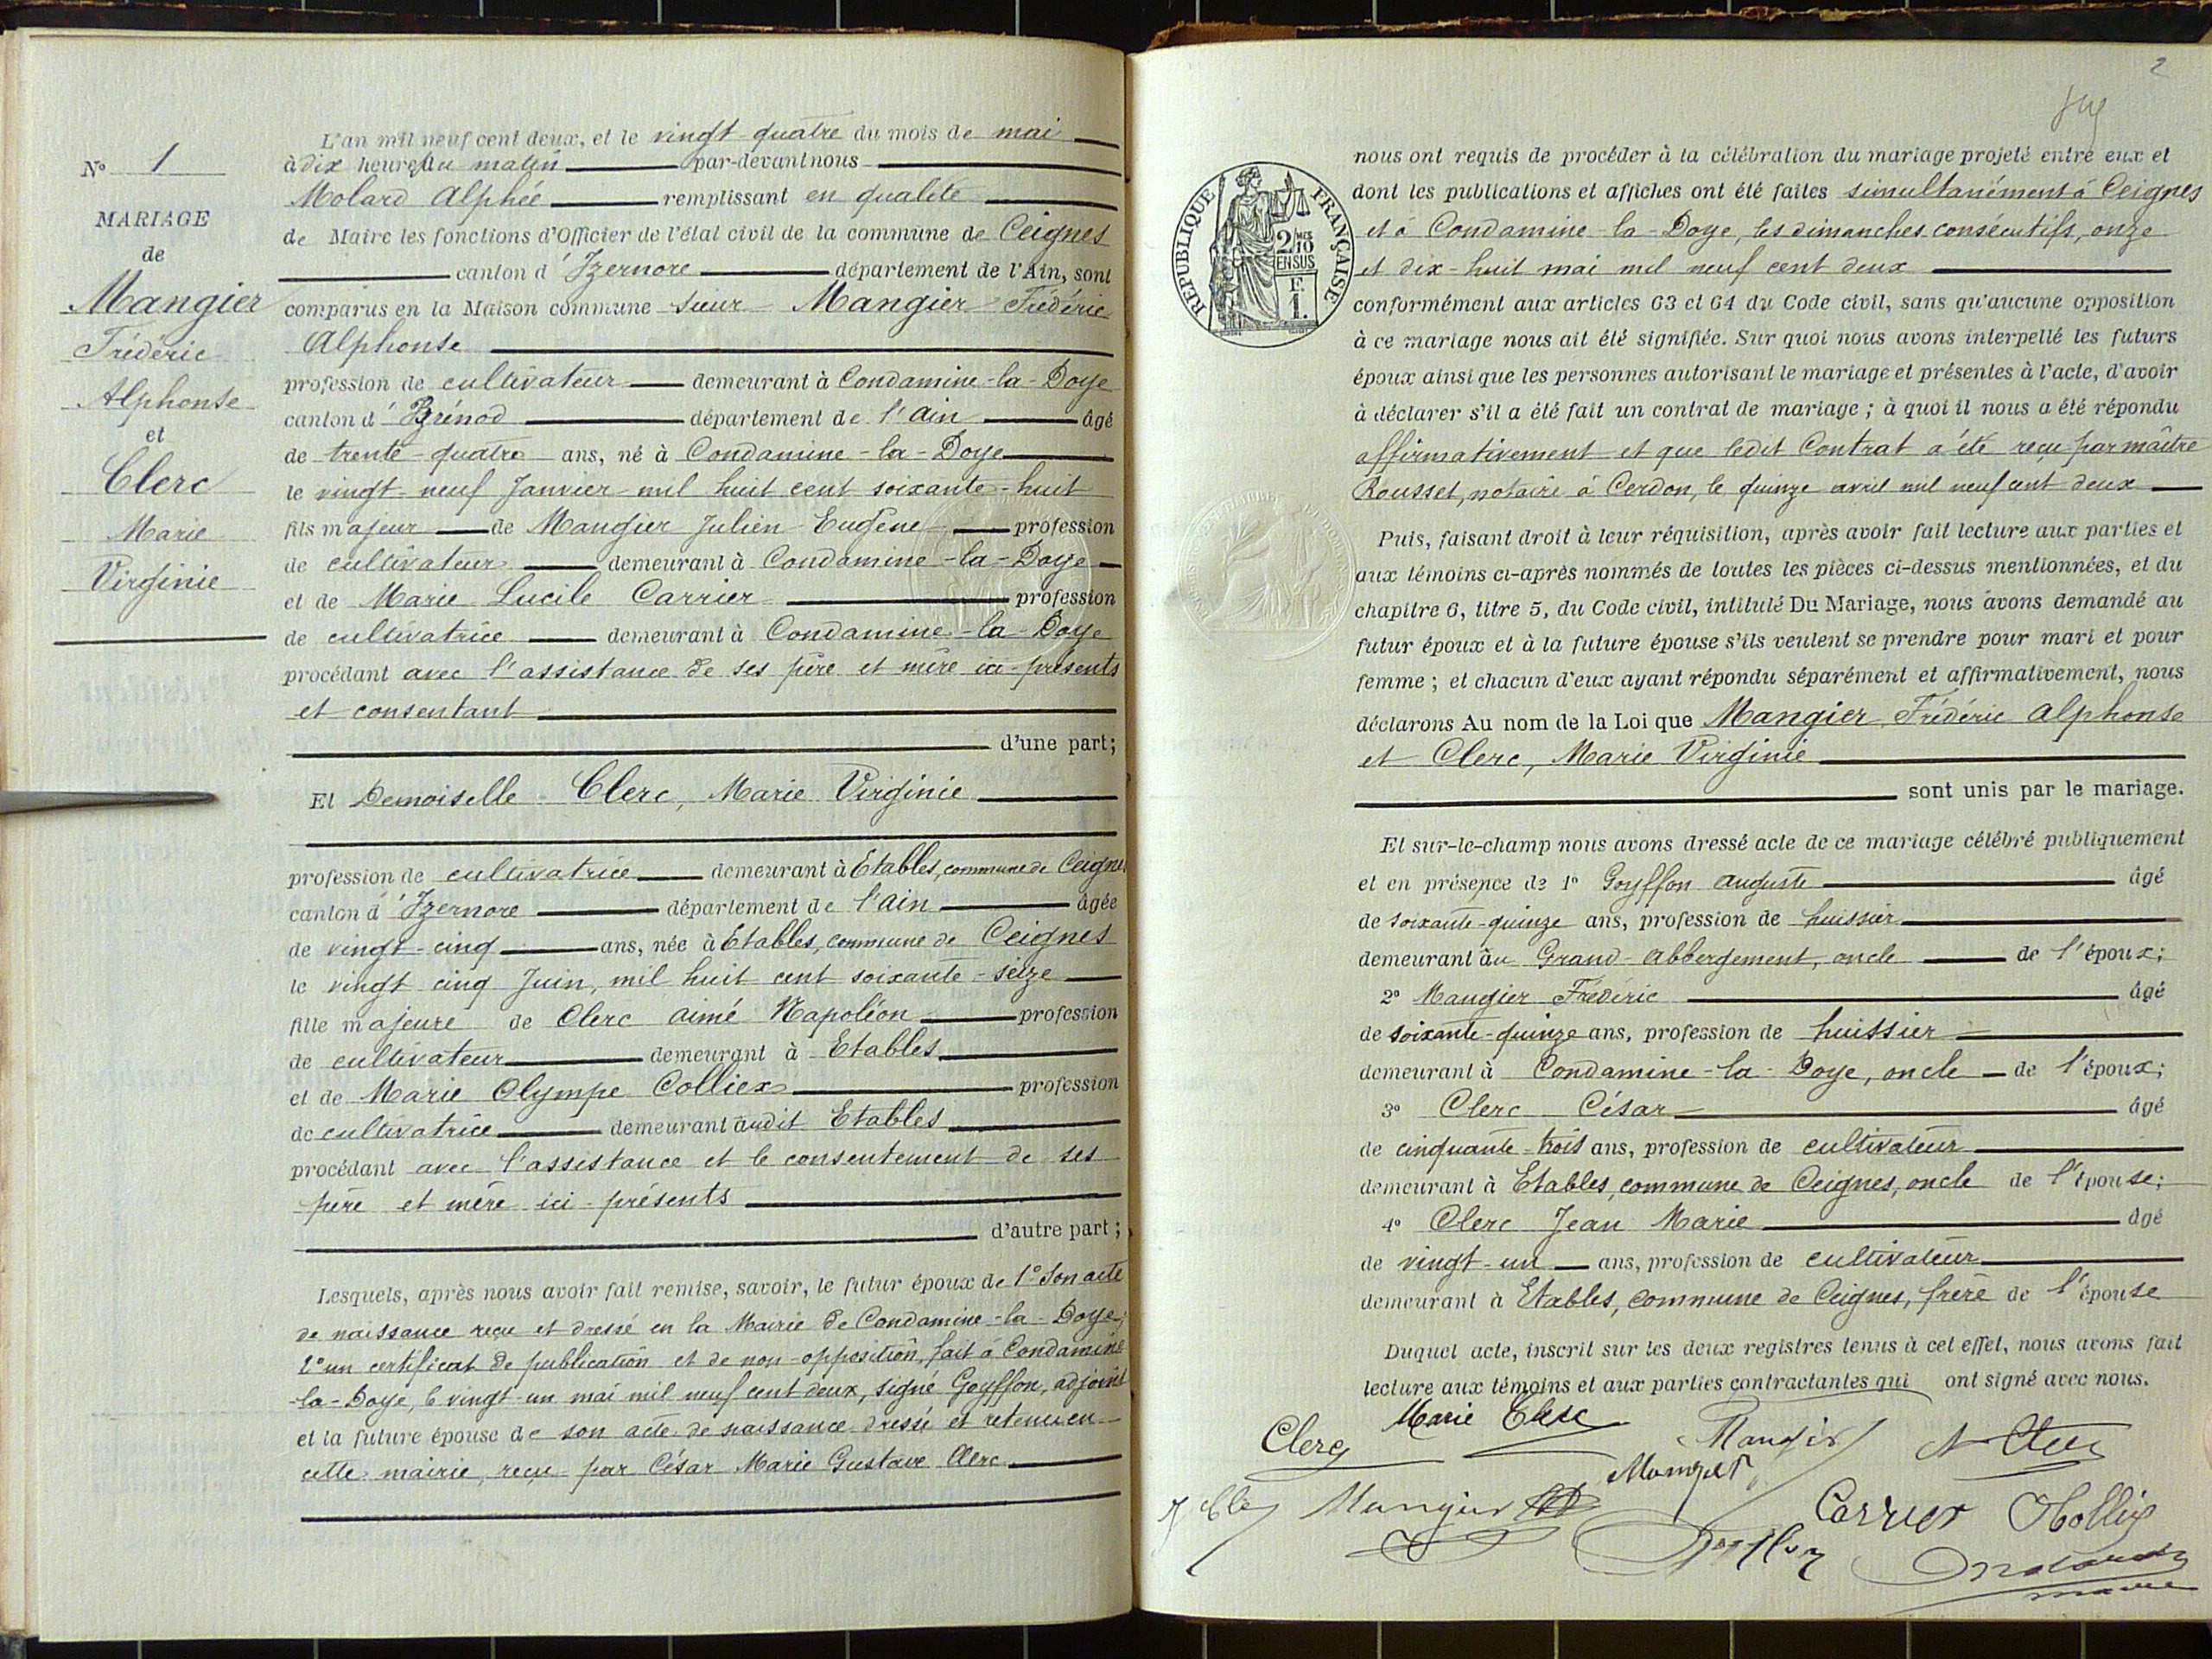 N° 1
MARIAGE
de
Mangier
Frédéric
Alphonse
et
Clerc
Marie
Virginie
L'an mil neuf cent deux, et le vingt-quatre du mois de mai
à dix heures du matin par-devant nous
Molard Alphée remplissant en qualité
de Maire les fonctions d'Officier de l'état civil de la commune de Ceignes
canton d'Izernore département de l'Ain, sont
comparus en la Maison commune sieur Mangier Frédéric
Alphonse
profession de cultivateur demeurant à Condamine-la-Doye
canton d'Brénod département de l'Ain âgé
de trente-quatre ans, né à Condamine-la-Doye
le vingt-neuf Janvier mil huit cent soixante-huit
fils majeur de Mangier Julien Eugène profession
de cultivateur demeurant à Condamine-la-Doye
et de Marie Lucile Carrier profession
de cultivatrice demeurant à Condamine-la-Doye
procédant avec l'assistance de ses père et mère ici-présents
et consentant
d'une part;
Et Demoiselle Clerc, Marie Virginie
profession de cultivatrice demeurant à Etables, commune de Ceignes
canton d'Izernore département de l'Ain âgée
de vingt-cinq ans, née à Etables, commune de Ceignes
le vingt cinq Juin, mil huit cent soixante-seize
fille majeure de Clerc Aimé Napoléon profession
de cultivateur demeurant à Etables
et de Marie Olympe Colliex profession
de cultivatrice demeurant audit Etables
procédant avec l'assistance et le consentement de ses
père et mère ici-présents
d'autre part;
Lesquels, après nous avoir fait remise, savoir, le futur époux de 1° Son acte
de naissance reçu et dressé en la Mairie de Condamine-la-Doye;
2° un certificat de publication et de non-opposition, fait à Condamine
-la-Doye, le vingt-un mai mil neuf cent deux, signé Goyffon, adjoint
et la future épouse de son acte de naissance dressé et retenu en
cette mairie, reçu par César Marie Gustave Clerc
2
RÉPUBLIQUE FRANÇAISE
2/10 MES
EN SUS
F.
1.
nous ont requis de procéder à la célébration du mariage projeté entre eux et
dont les publications et affiches ont été faites simultanément à Ceignes
et à Condamine-la-Doye, les dimanches consécutifs, onze
et dix-huit mai mil neuf cent deux
conformément aux articles 63 et 64 du Code civil, sans qu'aucune opposition
à ce mariage nous ait été signifiée. Sur quoi nous avons interpellé les futurs
époux ainsi que les personnes autorisant le mariage et présentes à l'acte, d'avoir
à déclarer s'il a été fait un contrat de mariage; à quoi il nous a été répondu
affirmativement et que ledit Contrat a été reçu par maître
Rousset, notaire à Cerdon, le quinze avril mil neuf cent deux
Puis, faisant droit à leur réquisition, après avoir fait lecture aux parties et
aux témoins ci-après nommés de toutes les pièces ci-dessus mentionnées, et du
chapitre 6, titre 5, du Code civil, intitulé Du Mariage, nous avons demandé au
futur époux et à la future épouse s'ils veulent se prendre pour mari et pour
femme; et chacun d'eux ayant répondu séparément et affirmativement, nous
déclarons Au nom de la Loi que Mangier Frédéric Alphonse
et Clerc, Marie Virginie
sont unis par le mariage.
Et sur-le-champ nous avons dressé acte de ce mariage célébré publiquement
et en présence de 1° Goyffon Auguste âgé
de soixante-quinze ans, profession de huissier
demeurant au Grand-Abbergement, oncle de l'époux;
2° Mangier Frédéric âgé
de soixante-quinze ans, profession de huissier
demeurant à Condamine-la-Doye, oncle de l'époux;
3° Clerc César âgé
de cinquante-trois ans, profession de cultivateur
demeurant à Etables, commune de Ceignes, oncle de l'épouse;
4° Clerc Jean Marie âgé
de vingt-un ans, profession de cultivateur
demeurant à Etables, commune de Ceignes, frère de l'épouse
Duquel acte, inscrit sur les deux registres tenus à cet effet, nous avons fait
lecture aux témoins et aux parties contractantes qui ont signé avec nous.
Clerc Marie Clerc Mangier
Mangier
Mangier Carrier
Goyffon Molard
maire